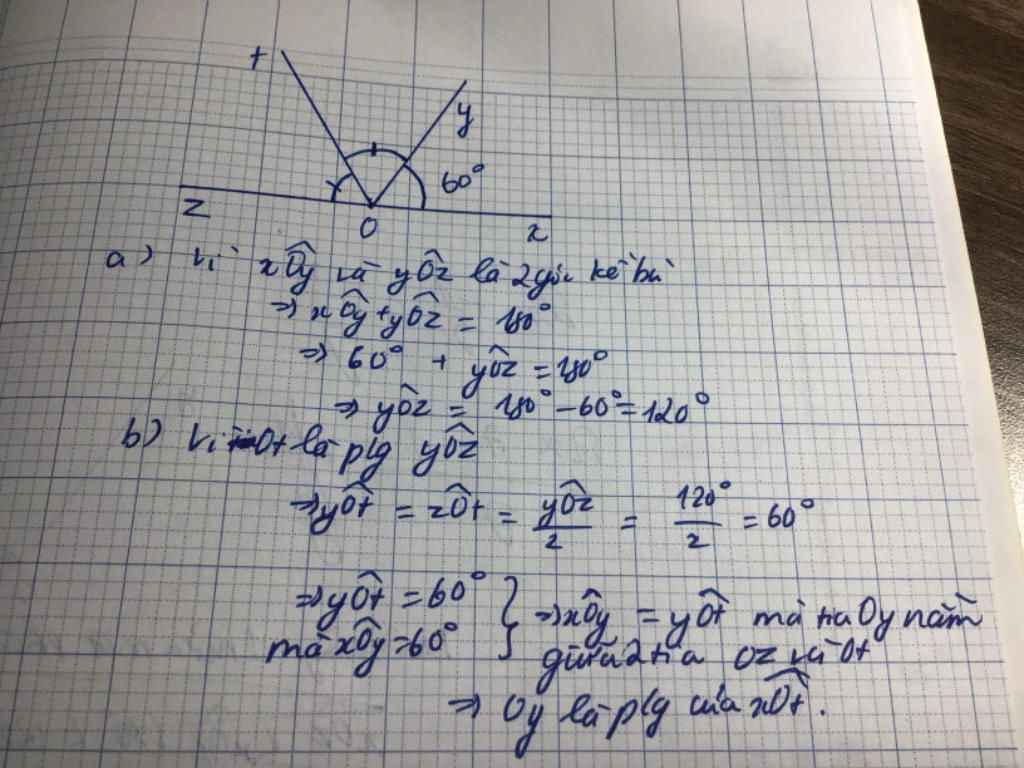 t
y
60°
z
O
x
a) Vì xÔy và yÔz là 2 góc kề bù
=> xÔy + yÔz = 180°
=> 60° + yÔz = 180°
=> yÔz = 180° - 60° = 120°
b) Vì Ot là p/g yÔz
=> yÔt = zÔt = yÔz/2 = 120°/2 = 60°
=> yÔt = 60°
mà xÔy = 60°
} => xÔy = yÔt mà tia Oy nằm
giữa 2 tia Oz và Ot
=> Oy là p/g của xÔt.